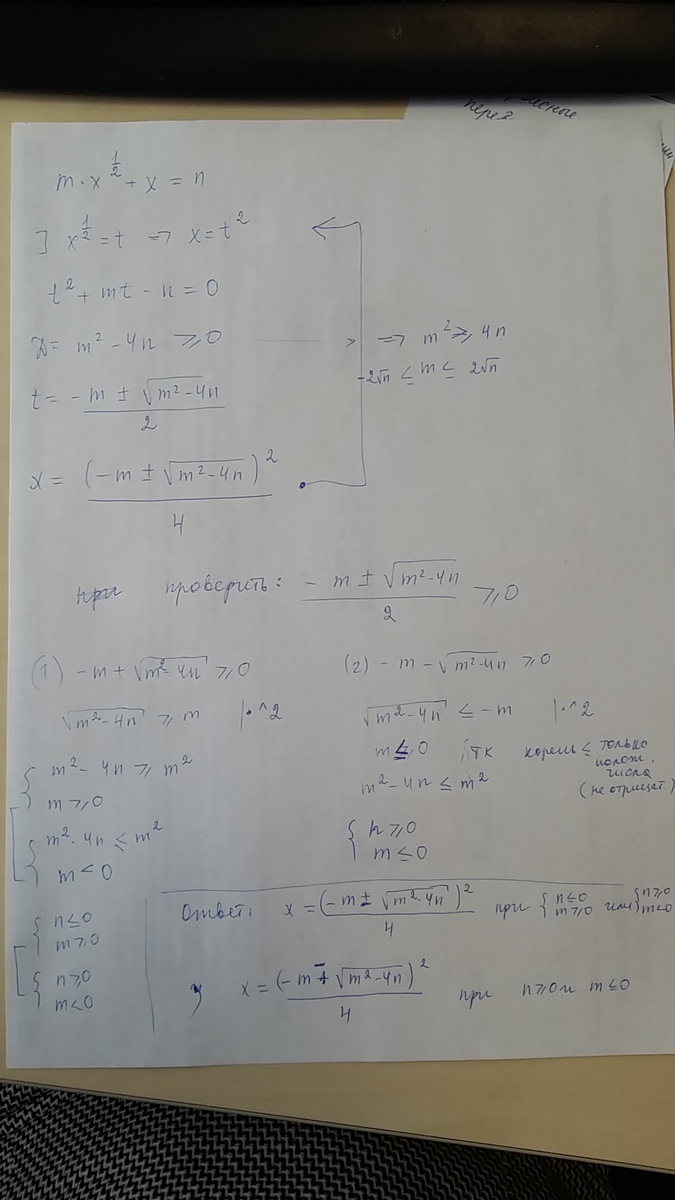 лесные
перех
m·x^{1/2} + x = n
] x^{1/2} = t => x = t²
t² + mt - n = 0
D = m² - 4n ≥ 0 => m² ≥ 4n
-2√n ≤ m ≤ 2√n
t = (-m ± √(m² - 4n)) / 2
x = (-m ± √(m² - 4n))² / 4
проверить: (-m ± √(m² - 4n)) / 2 ≥ 0
(1) -m + √(m² - 4n) ≥ 0
√(m² - 4n) ≥ m |·^2
{ m² - 4n ≥ m²
m ≥ 0
{ m² - 4n ≤ m²
m < 0
{ n ≤ 0
m ≥ 0
{ n ≥ 0
m < 0
(2) -m - √(m² - 4n) ≥ 0
√(m² - 4n) ≤ -m |·^2
m ≤ 0 , тк корень ≤ только
полож.
числа
(не отрицат.)
m² - 4n ≤ m²
{ n ≥ 0
m ≤ 0
Ответ: x = (-m ± √(m² - 4n))² / 4 при { n ≤ 0 m ≥ 0 или { n ≥ 0 m < 0
x = (-m - √(m² - 4n))² / 4 при n ≥ 0 и m ≤ 0